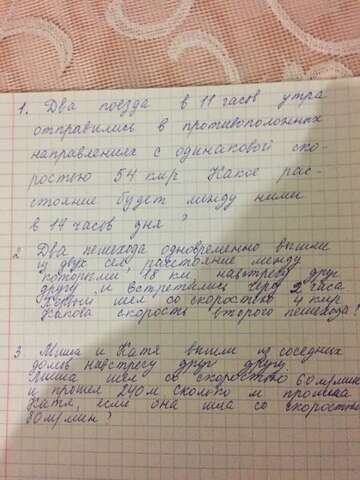 1. Два поезда в 11 часов утра
отправились в противоположных
направлениях с одинаковой ско-
ростью 54 км/ч Какое рас-
стояние будет между ними
в 14 часов дня?
2 Два пешехода одновременно вышли
из двух сёл, расстояние между
которыми 18 км навстречу друг
другу и встретились через 2 часа
Первый шёл со скоростью 4 км/ч
Какова скорость второго пешехода?
3 Миша и Катя вышли из соседних
домов навстречу друг другу.
Миша шёл со скоростью 60 м/мин
и прошёл 240 м сколько м прошла
Катя, если она шла со скоростью
80 м/мин?